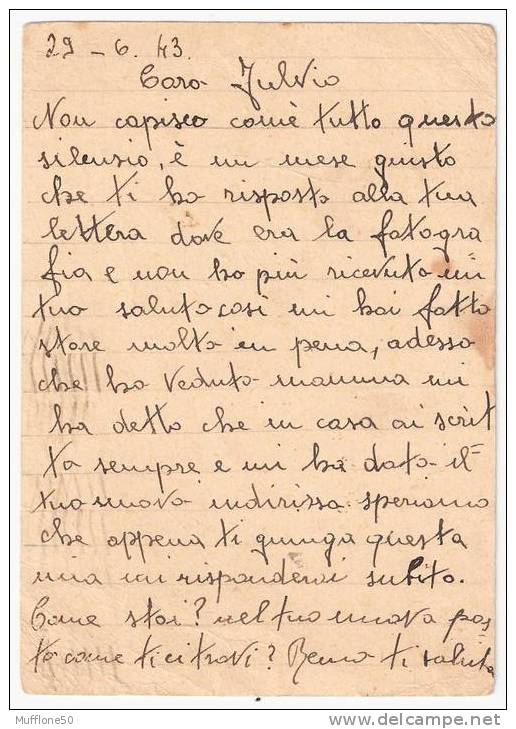 29 - 6. 43.
Caro Fulvio
Non capisco come tutto questo
silensio, è un mese giusto
che ti ho risposto alla tua
lettera dove era la fotogra
fia e non ho più ricevuto un
tuo saluto così mi hai fatto
stare molto in pena, adesso
che ho veduto mamma mi
ha detto che in casa ai scrit
to sempre e mi ha dato il=
tuo nuovo indirisso speriamo
che appena ti giunga questa
mia mi risponderai subito.
Come stai? nel tuo nuovo pos=
to come ti ci trovi? Remo ti saluta
Mufflone50
delcampe.net